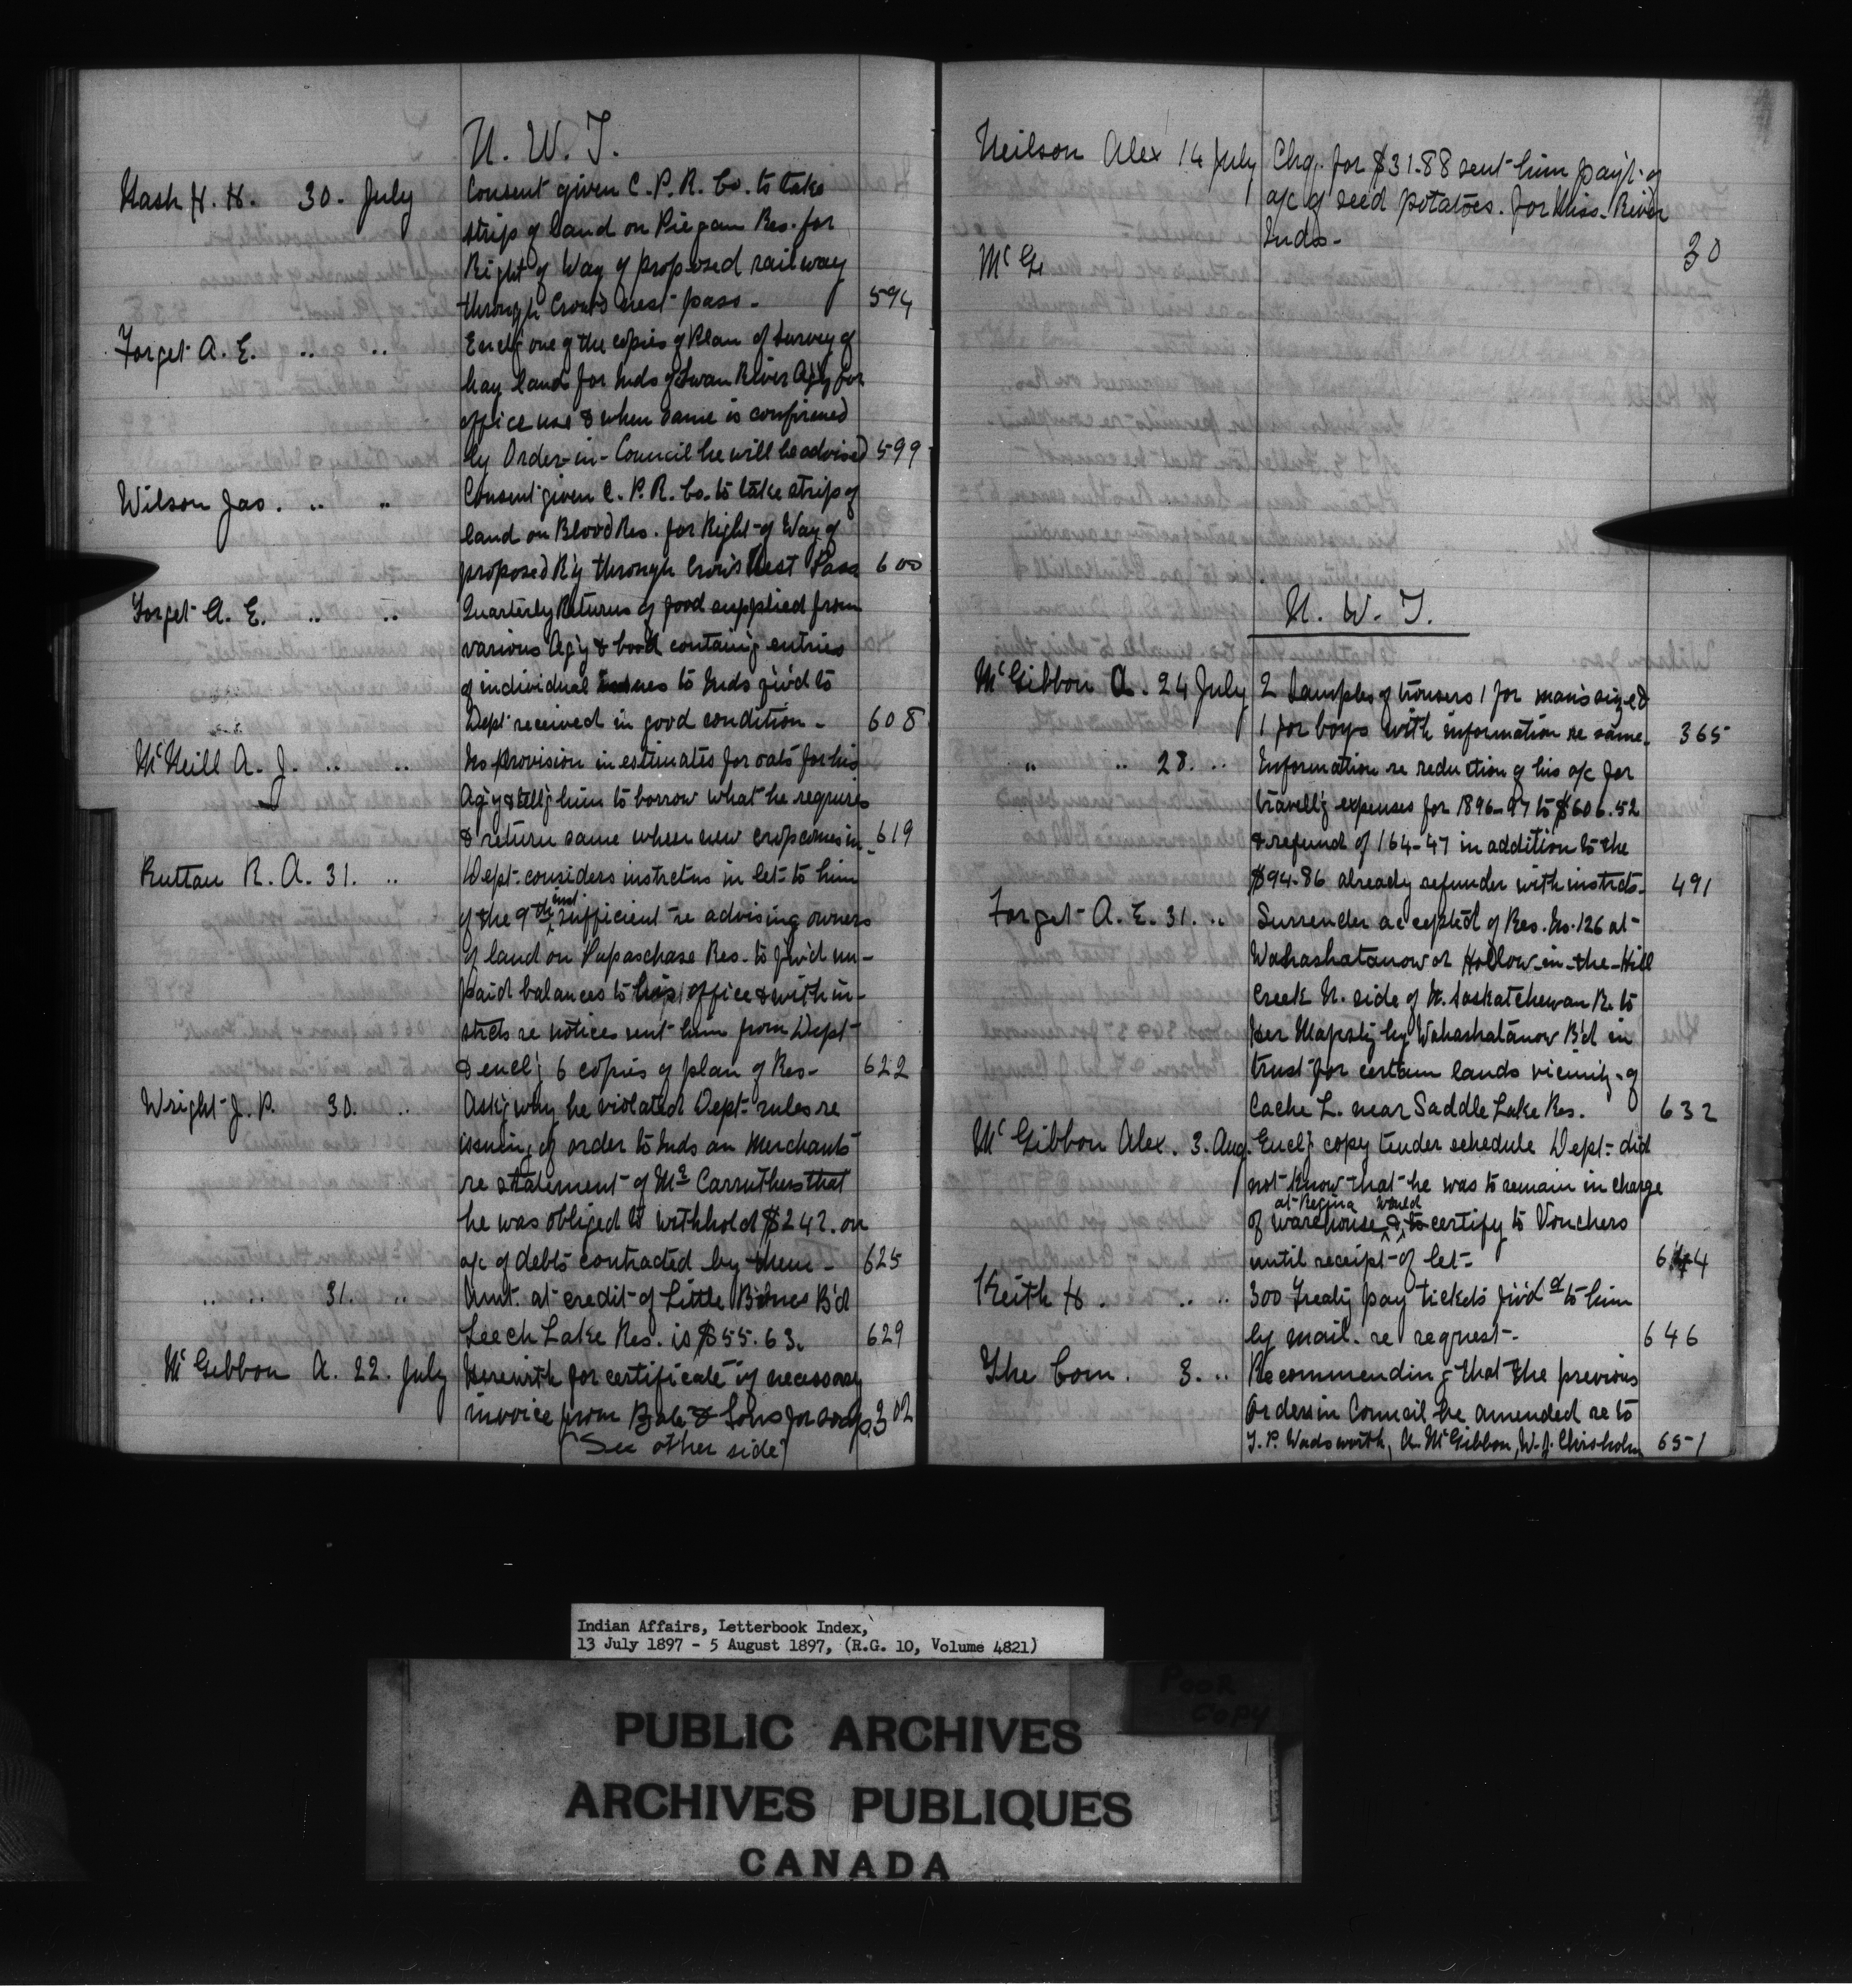 N. W. T.
Nash H. H. 30. July Consent given C. P. R. Co. to take
strip of land on Piegan Res. for
Right of Way of proposed railway
through Crow's nest pass. 594
Forget A. E. " " Encl'g one of the copies of Plan of Survey of
hay lands for Inds of Swan River Ag'y for
office use & when same is confirmed
by Order-in-Council he will be advised 599
Wilson Jas. " " Consent given C. P. R. Co. to take strip of
land on Blood Res. for Right of Way of
proposed R'y through Crow's Nest Pass 600
Forget A. E. " " Quarterly Returns of food supplied from
various Ag'y & book containg entries
of individual issues to Inds f'w'd to
Dept received in good condition - 608
McNeill A. J. " " No Provision in estimates for oats for his
Ag'y & tell'g him to borrow what he requires
& return same when new crop comes in - 619
Ruttan R. A. 31. " Dept. considers instrctns in let. to him
of the 9th inst sufficient re advising owners
of land on Papaschase Res. to f'w'd un-
paid balances to his office & with in-
strcts re notices sent him from Dept
& encl'g 6 copies of plan of Res - 622
Wright J. P. 30. " Ask'g why he violated Dept. rules re
issuing of order to Inds on Merchants
re statement of Mr Carruthers that
he was obliged to withhold $242. on
a/c of debts contracted by them - 625
" " 31. " Amt. at credit of Little Bones B'd
Leech Lake Res. is $55.63. 629
McGibbon A. 22. July Herewith for certificate if necessary
invoice from Bate & Sons for soap 302
(See other side)
Neilson Alex 14 July Chq. for $31.88 sent him pay't of
a/c of seed potatoes. for Miss. River
Inds - 30
McGi
N. W. T.
McGibbon A. 24 July 2 Samples of trousers 1 for man's size &
1 for boys with information re same. 365
" " 28. " Information re reduction of his a/c for
travell'g expenses for 1896-97 to $606.52
& refund of 164-47 in addition to the
$94-86 already refunder with instrcts. 491
Forget A. E. 31. " Surrender accepted of Res. No. 126 at
Wahashatanow or Hollow-in-the-Hill
Creek N. side of N. Saskatchewan R. to
Her Majesty by Wahashatanow B'd in
trust for certain lands vicinity of
Cache L. near Saddle Lake Res. 632
McGibbon Alex. 3. Aug. Encl'g copy tender schedule Dept. did
not know that he was to remain in charge
at Regina would
of warehouse & to certify to Vouchers
until receipt of let - 644
Keith H. " " 300 Treaty pay tickets f'w'd to him
by mail. re request - 646
The Com. 3. " Recommending that the previous
Order in Council be amended re to
T. P. Wadsworth, A. McGibbon, W. J. Chisholm 651
Indian Affairs, Letterbook Index,
13 July 1897 - 5 August 1897, (R.G. 10, Volume 4821)
POOR
COPY
PUBLIC ARCHIVES
ARCHIVES PUBLIQUES
CANADA